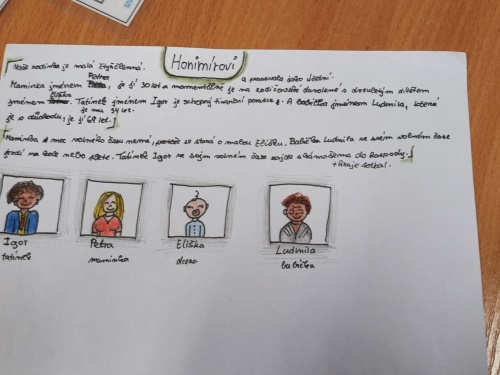 Honimírovi
Naše rodinka je malá čtyřčlenná.
Petra a pracovala jako účetní.
Maminka jménem, je jí 30 let a momentálně je na rodičovské dovolené s dvouletým dítětem
Eliška
jménem. Tatínek jménem Igor je schopný finanční poradce. A babička jménem Ludmila, která
je mu 34 let.
je v důchodu, je jí 68 let.
Maminka moc volného času nemá, protože se stará o malou Elišku. Babička Ludmila ve svém volném čase
jezdí na kole nebo plete. Tatínek Igor ve svém volném čase zajde s kámošema do hospody.
+ hraje fotbal.
Igor
tatínek
Petra
maminka
Eliška
dcera
Ludmila
babička